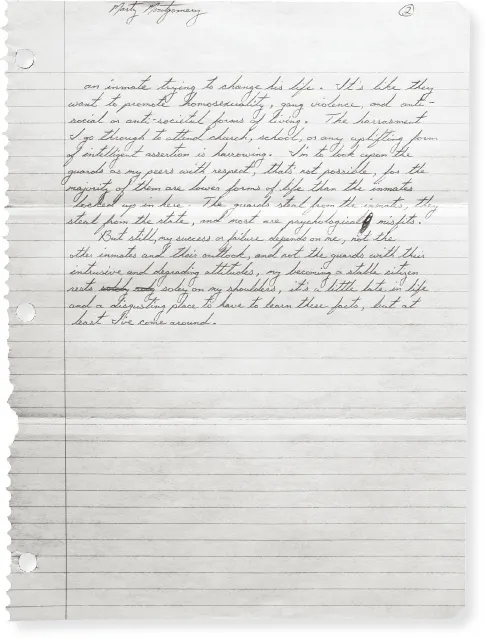 Marty Montgomery
2
an inmate trying to change his life. It's like they
want to promote homosexuality, gang violence, and anti-
social or anti-societal forms of living. The harrasment
I go through to attend church, school, or any uplifting form
of intelligent assertion is harrowing. I'm to look upon the
guards as my peers with respect, that's not possible, for the
majority of them are lower forms of life than the inmates
locked up in here. The guards steal from the inmates, they
steal from the state, and most are psychological misfits.
But still, my success or failure depends on me, not the
other inmates and their outlook, and not the guards with their
intrusive and degrading attitudes, my becoming a stable citizen
rests solely on my shoulders, it's a little late in life
and a disgusting place to have to learn these facts, but at
least I've come around.